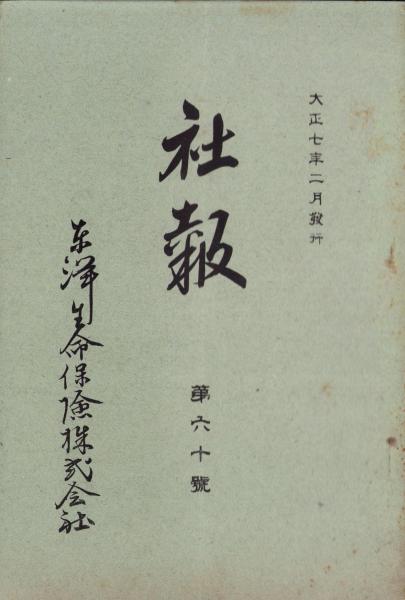 大正七年二月發行
社報
第六十號
东洋生命保險株式会社